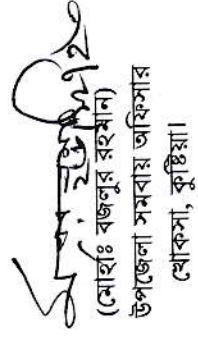 (মোহাঃ বজলুর রহমান)
উপজেলা সমবায় অফিসার
খোকসা, কুষ্টিয়া।